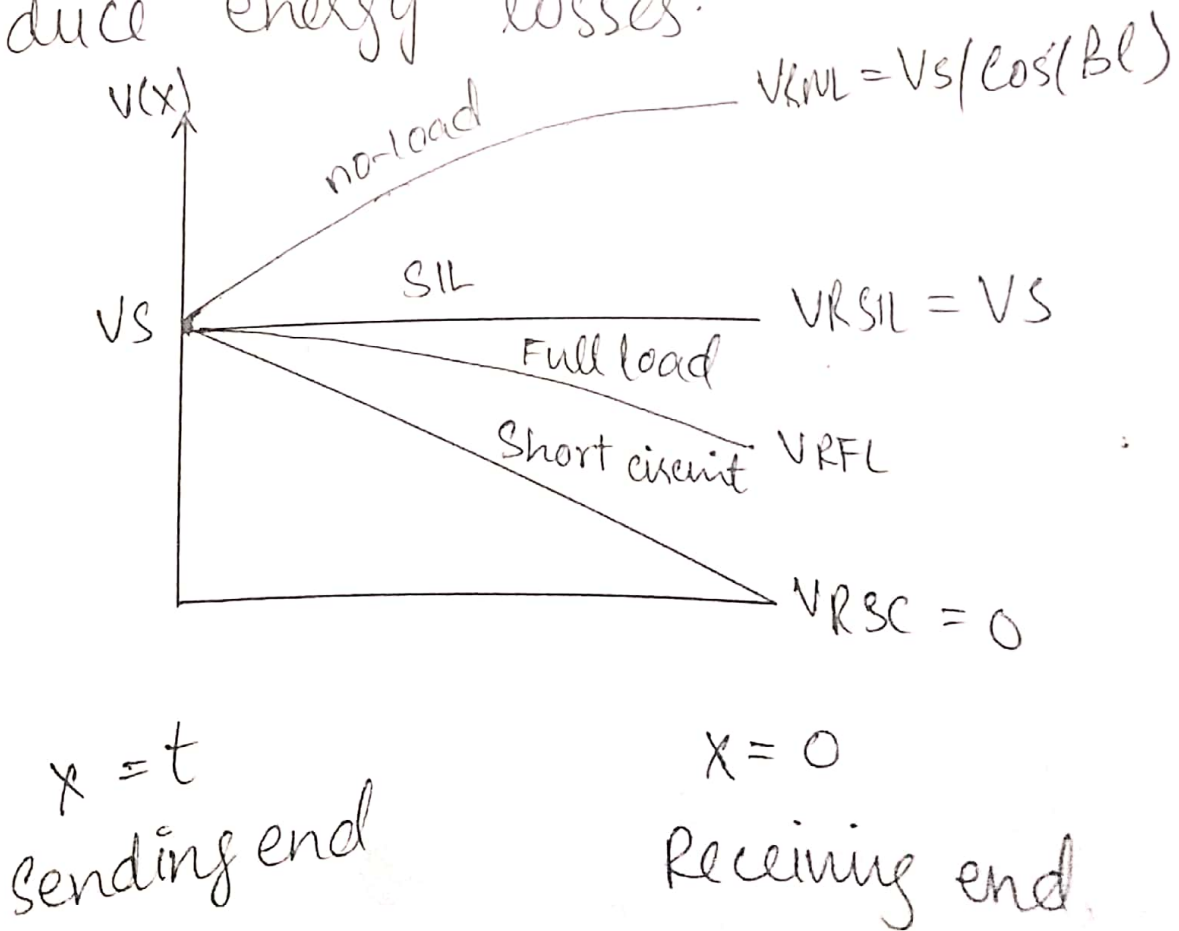 duce energy losses.
V(x)
no-load
VRNL = VS/Cos(Bl)
SIL
VS
VRSIL = VS
Full load
Short circuit
VRFL
VRSC = 0
x = t
X = 0
Sending end
Receiving end.